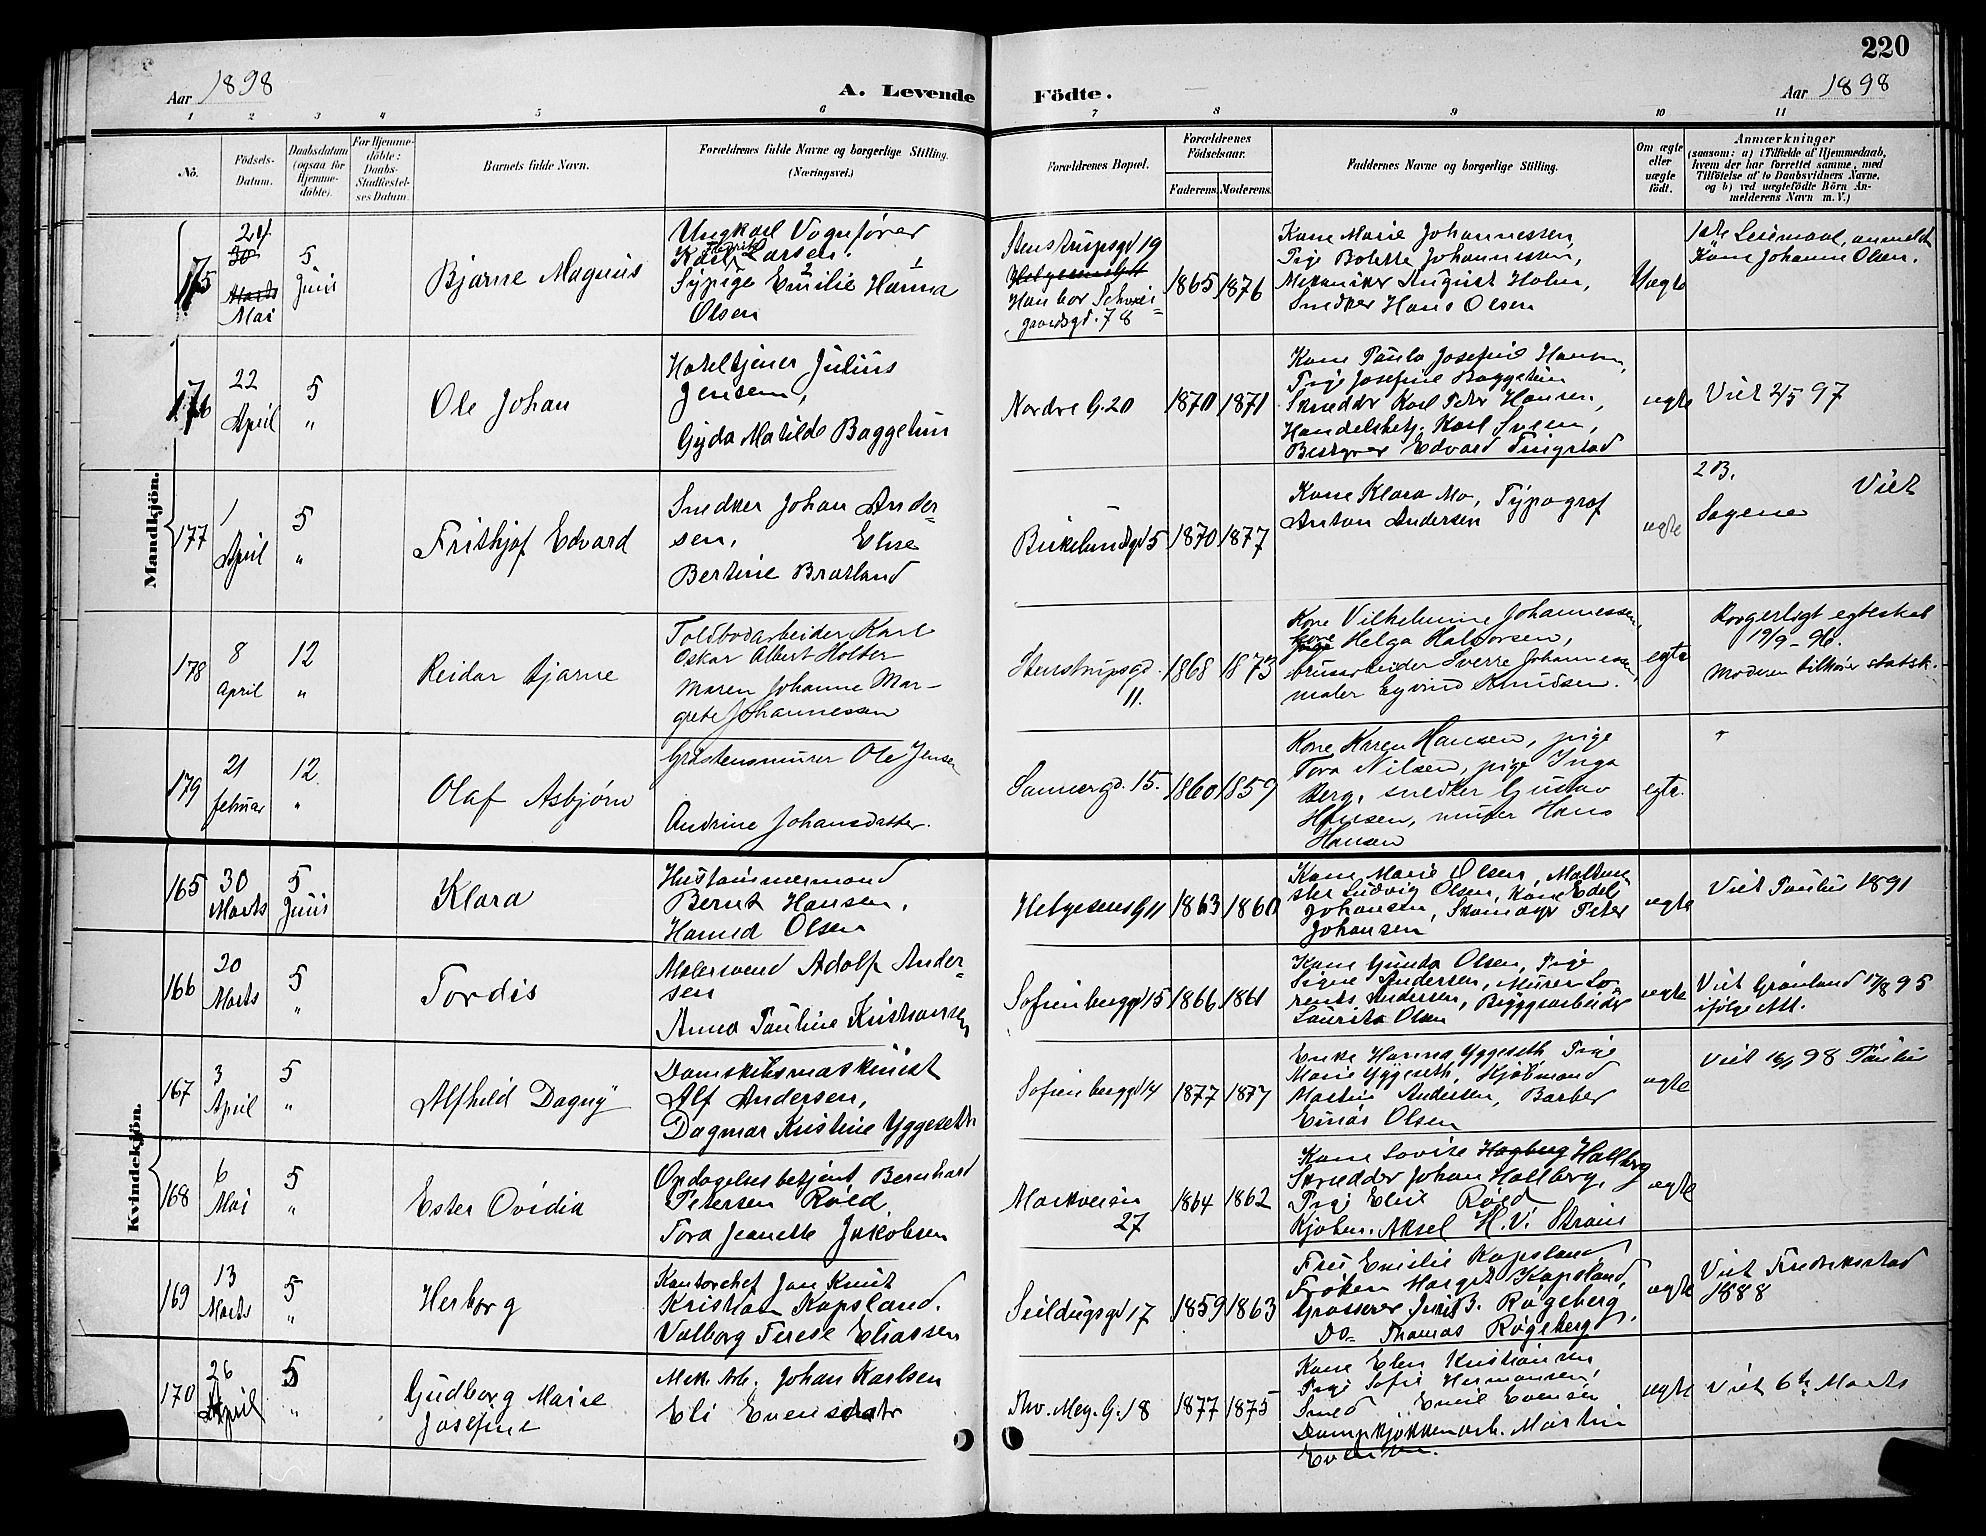 220
Aar 1898
A. Levende Födte.
Aar 1898
1 2 3 4 5 6 7 8 9 10 11
No.
Födsels-Datum.
Daabsdatum (ogsaa for Hjemme-döbte).
For Hjemme-döbte: Daabs-Stadfæstel-ses Datum.
Barnets fulde Navn.
Forældrenes fulde Navne og borgerlige Stilling. (Næringsvei.)
Forældrenes Bopæl.
Forældrenes Födselsaar.
Faderens. Moderens.
Faddernes Navne og borgerlige Stilling.
Om ægte eller uægte födt.
Anmærkninger
(saasom: a) i Tilfælde af Hjemmedaab,
hvem der har forrettet samme, med
Tilföielse af to Daabsvidners Navne,
og b) ved uægtefödte Börn An-
melderens Navn m. V.)
Mandkjön.
175
Mai
5 Juni
Bjarne Magnus
Ungkarl Vognfører
Karl Larsen.
Sypige Emilie Hanna
Olsen
Stenstrupsgd 19
Han bor Schwei-
gaardsgd. 78
1865 1876
Kone Marie Johannessen,
Pige Bolette Johannessen,
Mekaniker August Holm,
Snedker Hans Olsen
Uægte
1ste Leiermaal, anmeldt
Kone Johanne Olsen.
176
22 April
5 "
Ole Johan
Hoteltjener Julius
Jensen,
Gyda Matilde Baggetun
Nordre G. 20
1870 1871
Kone Paula Josefine Hansen,
Pige Josefine Baggetun
Skrædder Karl Peter Hansen,
Handelsbetj. Karl Svesen,
Bestyrer Edvard Tingstad
ægte
Viet 2/5 97
177
1 April
5 "
Frithjof Edvard
Snedker Johan Ander-
sen, Elise
Bertine Bratland
Birkelundsgd 5
1870 1877
Kone Klara Mo, Typograf
Anton Andersen
ægte
2 B. Viet
Sagene
178
8 april
12 "
Reidar Bjarne
Toldbodarbeider Karl
Oskar Albert Holter
Maren Johanne Mar-
grete Johannessen
Stenstrupsgd.
11.
1868 1873
Kone Vilhelmine Johannessen,
Helga Halvorsen,
brusarbeider Sverre Johannessen,
maler Eyvind Knudsen.
egte
Borgerligt egteskab
19/9-96.
Moderen tilhører statsk.
179
21 februar
12. "
Olaf Asbjørn
Gråstensmurer Ole Jensen
Andrine Johansdatter.
Sannergd. 15.
1860 1859
Kone Karen Hansen, pige
Tora Nilsen, pige Inga
Berg, snedker Gustav
Hansen, murer Hans
Hansen
egte.
"
Kvindekjön.
165
30 Marts
5 Juni
Klara
Hustømmermand
Bernt Hansen,
Hanna Olsen
Helgesens G 11
1863 1860
Kone Marie Olsen, Maltme
ster Ludvig Olsen, Kone Edel
Johansen, Skomager Peter
Johansen
ægte
Viet Paulus 1891
166
20 Marts
5 "
Tordis
Malersvend Adolf Ander-
sen
Anna Pauline Kristiansen
Sofienberggd 15
1866 1861
Kone Gunda Olsen, Pige
Signe Andersen, Murer Lo-
rents Andersen, Byggsarbeider
Laurits Olsen
ægte
Viet Grønland 17/8 95
ifølge Att.
167
3 April
5 "
Alfhild Dagny
Damskibsmaskinist
Alf Andersen,
Dagmar Kristine Yggeseth
Sofienberggd 14
1877 1877
Enke Hanna Yggeseth Pige
Marie Yggeseth, Kjøbmand
Martin Andersen, Barber
Einar Olsen
ægte
Viet 16/1 98 Paulus
168
6 Mai
5 "
Ester Ovidia
Opdagelsesbetjent Bernhard
Petersen Røed,
Tora Jeanette Jakobsen
Markveien
27
1864 1862
Kone Lovise Hagberg Hallberg
Skrædder Johan Hallberg,
Pige Elise Røed
Kjøbm. Aksel H. V. Strøm
ægte
169
13 Marts
5 "
Herborg
Kontorchef Jan Knut
Kristian Kapsland.
Valborg Terese Eliassen
Seildugsgd 17
1859 1863
Fru Emilie Kapsland
Frøken Margit Kapsland,
Grosserer Juris B. Røgeberg
Do- Thomas Røgeberg.
ægte
Viet Fredriksstad
1888
170
26 April
5 "
Gudborg Marie
Josefine
Mek. Arb. Johan Karlsen
Eli Evensdatr
Thv. Mey. G. 18
1877 1875
Kone Elen Kristiansen,
Pige Sofie Hermansen,
Smed Emil Evensen
Dampkjøkkenarb. Martin
Evensen.
ægte
Viet 6te Marts